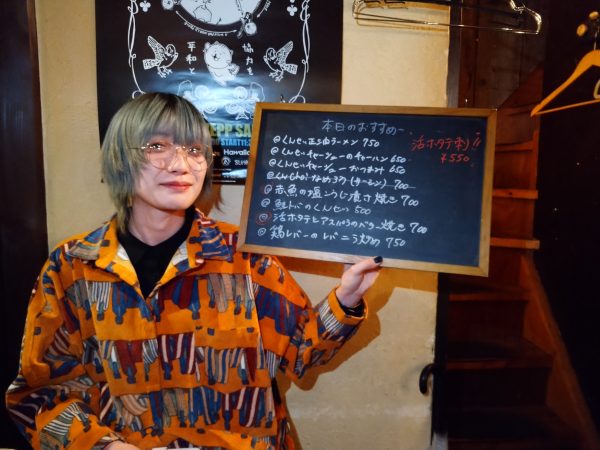 協力を
平和と
EPP SA
STARTT
Hawaiian
本日のおすすめ
活ホタテ刺!!
¥550
@くんせい正油ラーメン 750
@くんせいチャーシューのチャーハン 650
@くんせいチャーシューおつまみ 650
700
@赤魚の塩こうじ漬け焼き 700
@鮭トバのくんせい 500
@活ホタテとアスパラのバター焼き 700
@鶏レバーのレバニラ炒め 750